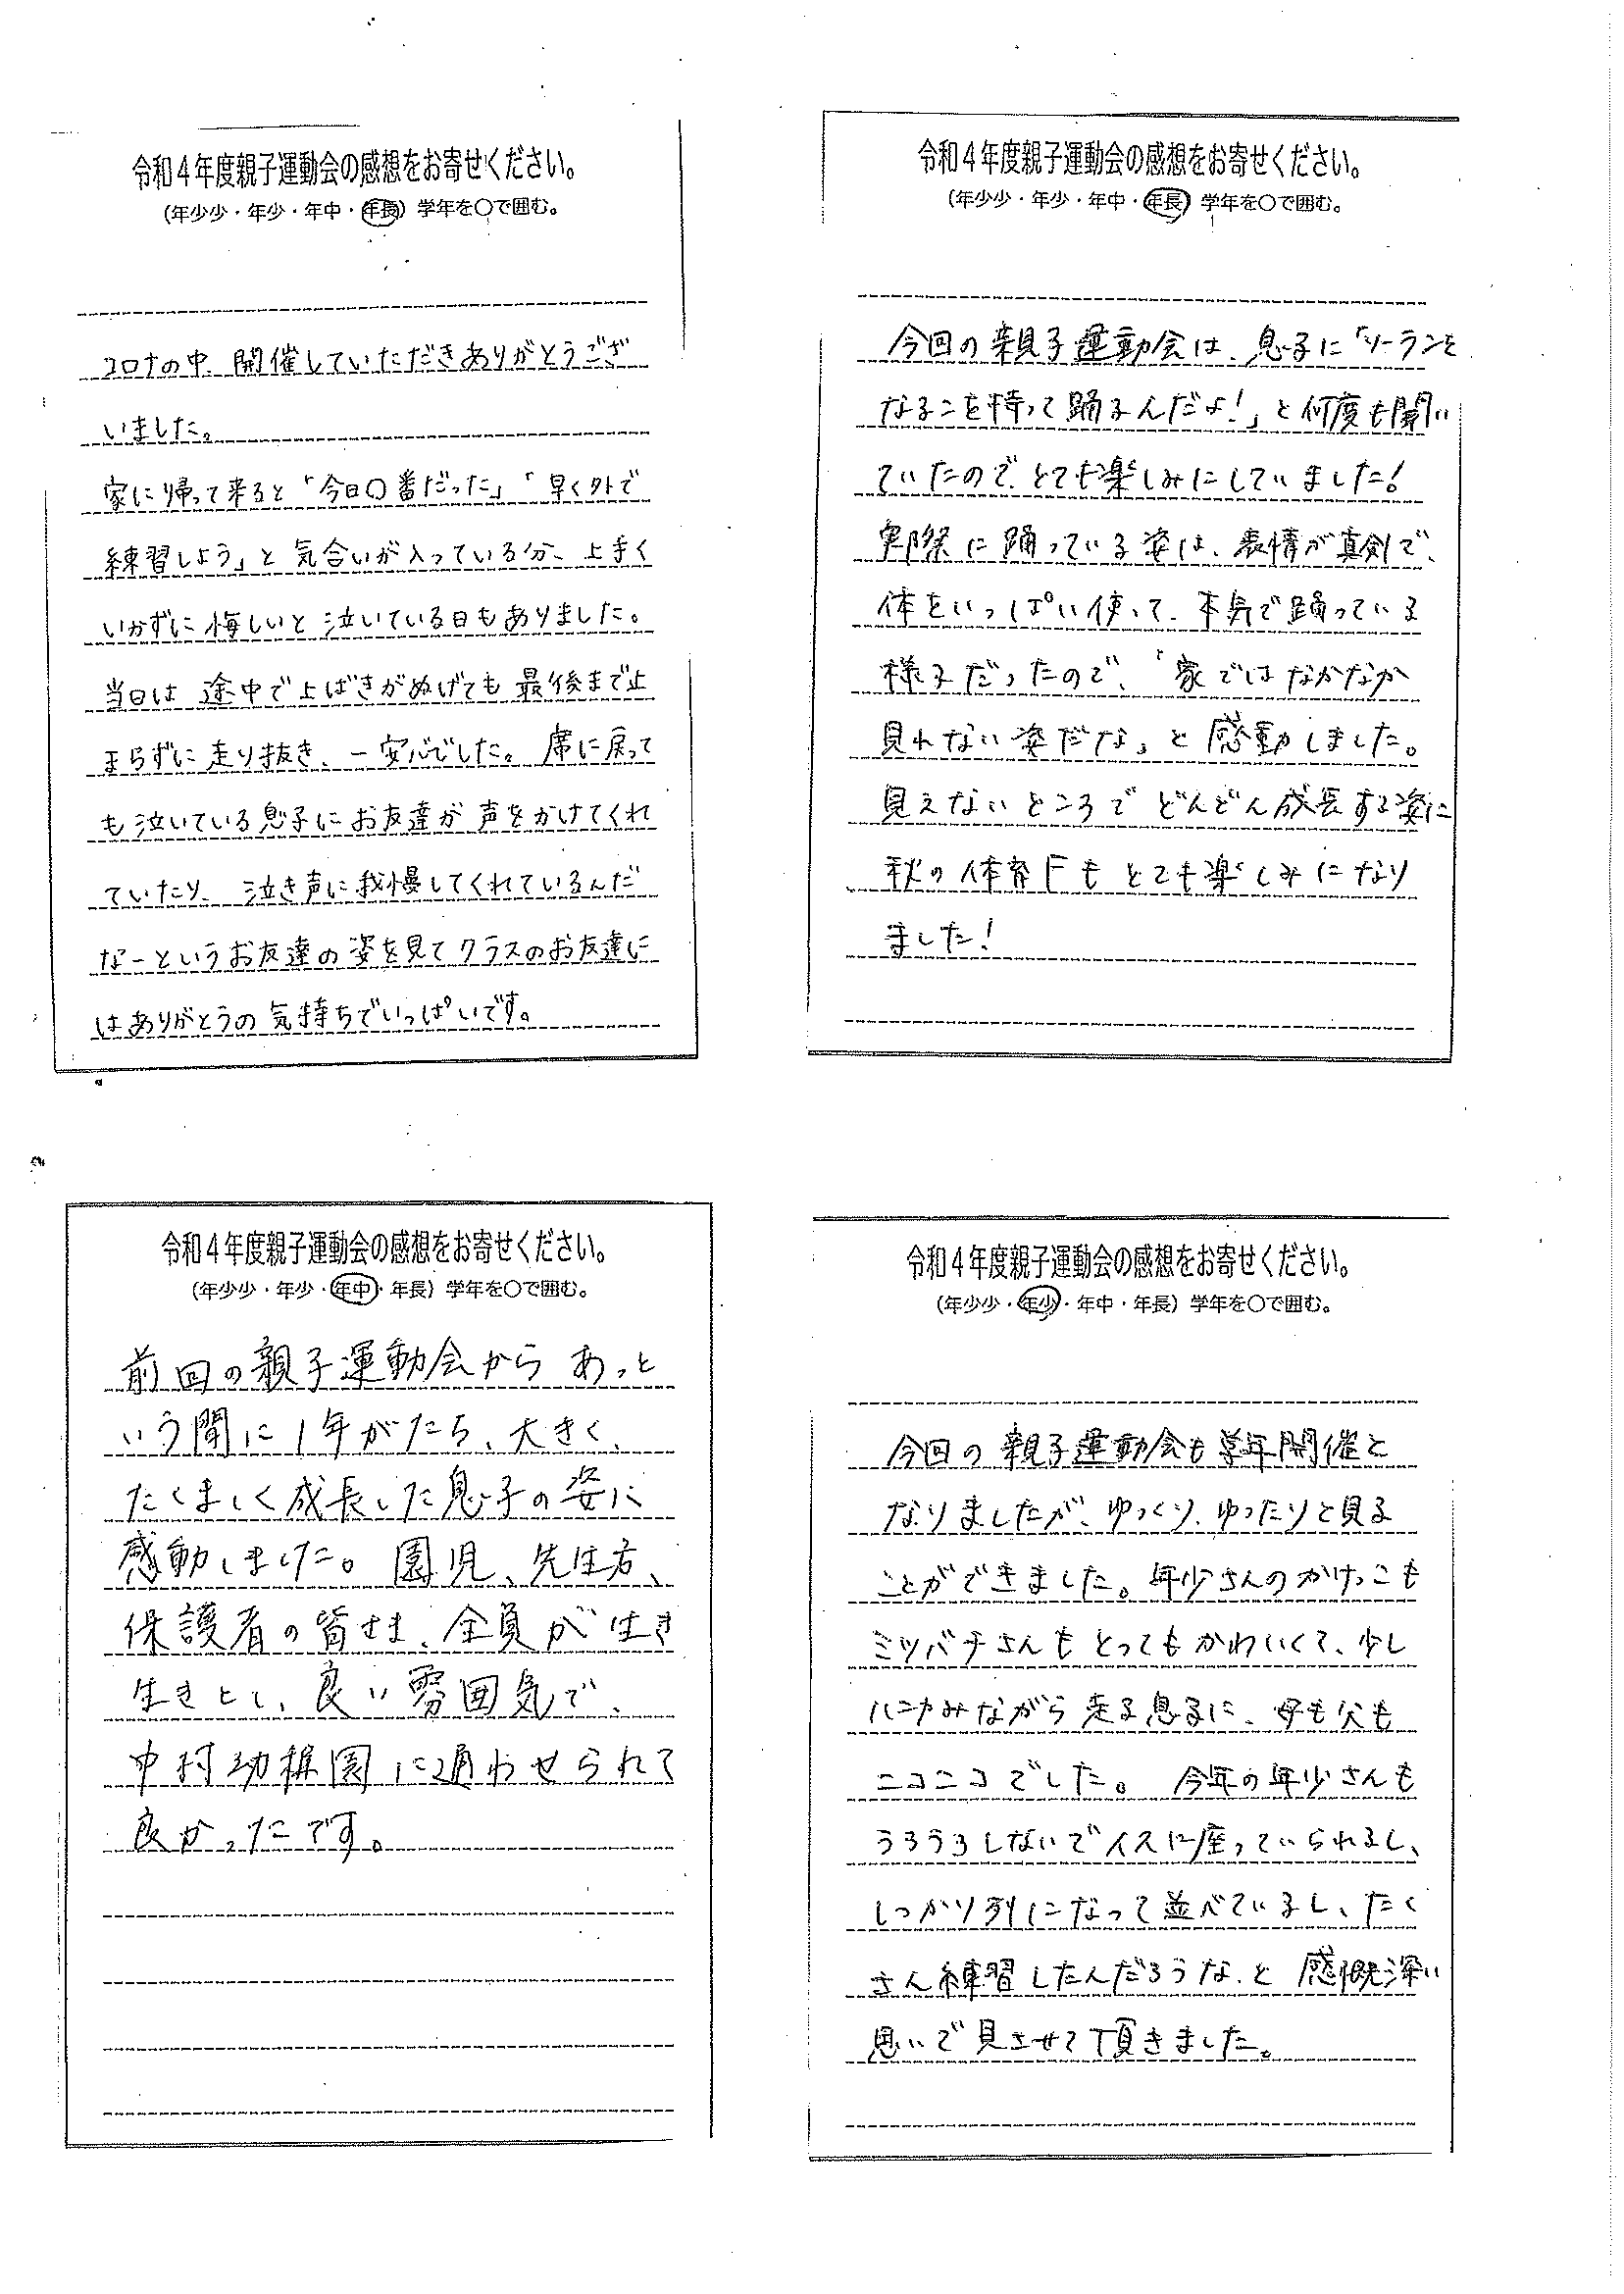 令和4年度親子運動会の感想をお寄せください。
(年少少・年少・年中・年長) 学年を〇で囲む。
コロナの中、開催していただきありがとうござ
いました。
家に帰って来ると「今日〇番だった」「早く外で
練習しよう」と気合いが入っている分、上手く
いかずに悔しいと泣いている日もありました。
当日は途中で上ばきがぬげても最後まで止
まらずに走り抜き、一安心でした。席に戻って
も泣いている息子にお友達が声をかけてくれ
ていたり、泣き声に我慢してくれているんだ
なーというお友達の姿を見てクラスのお友達に
はありがとうの気持ちでいっぱいです。
令和4年度親子運動会の感想をお寄せください。
(年少少・年少・年中・年長) 学年を〇で囲む。
今回の親子運動会は、息子に「ソーランを
なるこを持って踊るんだよ!」と何度も聞い
ていたので、とても楽しみにしていました!
実際に踊っている姿は、表情が真剣で、
体をいっぱい使って、本気で踊っている
様子だったので、「家ではなかなか
見れない姿だな」と感動しました。
見えないところでどんどん成長する姿に
秋の体育Fもとても楽しみになり
ました!
令和4年度親子運動会の感想をお寄せください。
(年少少・年少・年中・年長) 学年を〇で囲む。
前回の親子運動会からあっと
いう間に1年がたち、大きく、
たくましく成長した息子の姿に
感動しました。園児、先生方、
保護者の皆さま、全員が生き
生きとし、良い雰囲気で、
中村幼稚園に通わせられて
良かったです。
令和4年度親子運動会の感想をお寄せください。
(年少少・年少・年中・年長) 学年を〇で囲む。
今回の親子運動会も学年開催と
なりましたが、ゆっくり、ゆったりと見る
ことができました。年少さんのかけっこも
ミツバチさんもとってもかわいくて、少し
ハニカみながら走る息子に、母も父も
ニコニコでした。今年の年少さんも
うろうろしないでイスに座っていられるし、
しっかり列になって並べているし、たく
さん練習したんだろうな、と感慨深い
思いで見させて頂きました。